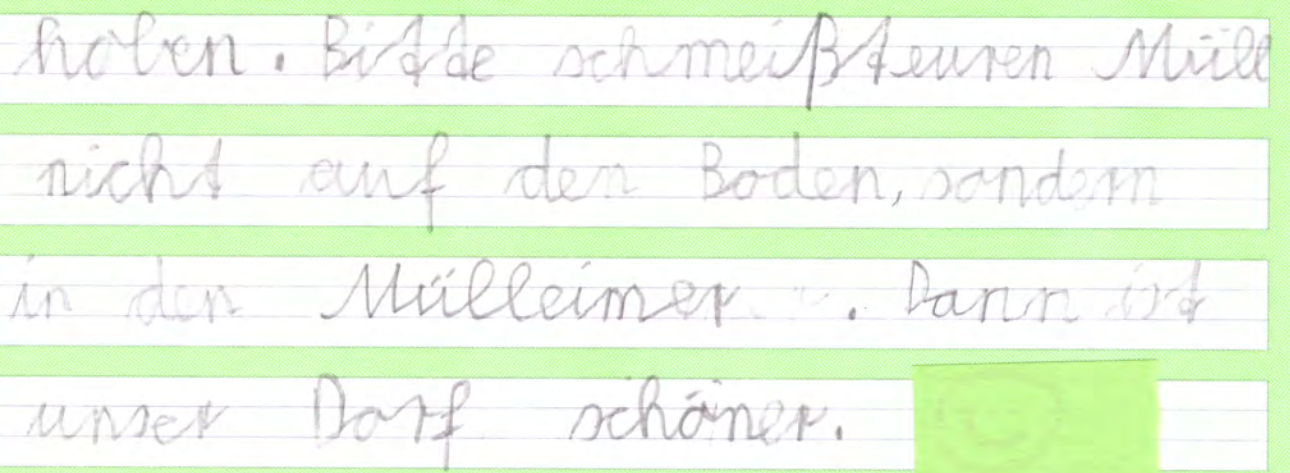 holen. Bitte schmeißt euren Müll
nicht auf den Boden, sondern
in den Mülleimer. Dann ist
unser Dorf schöner.